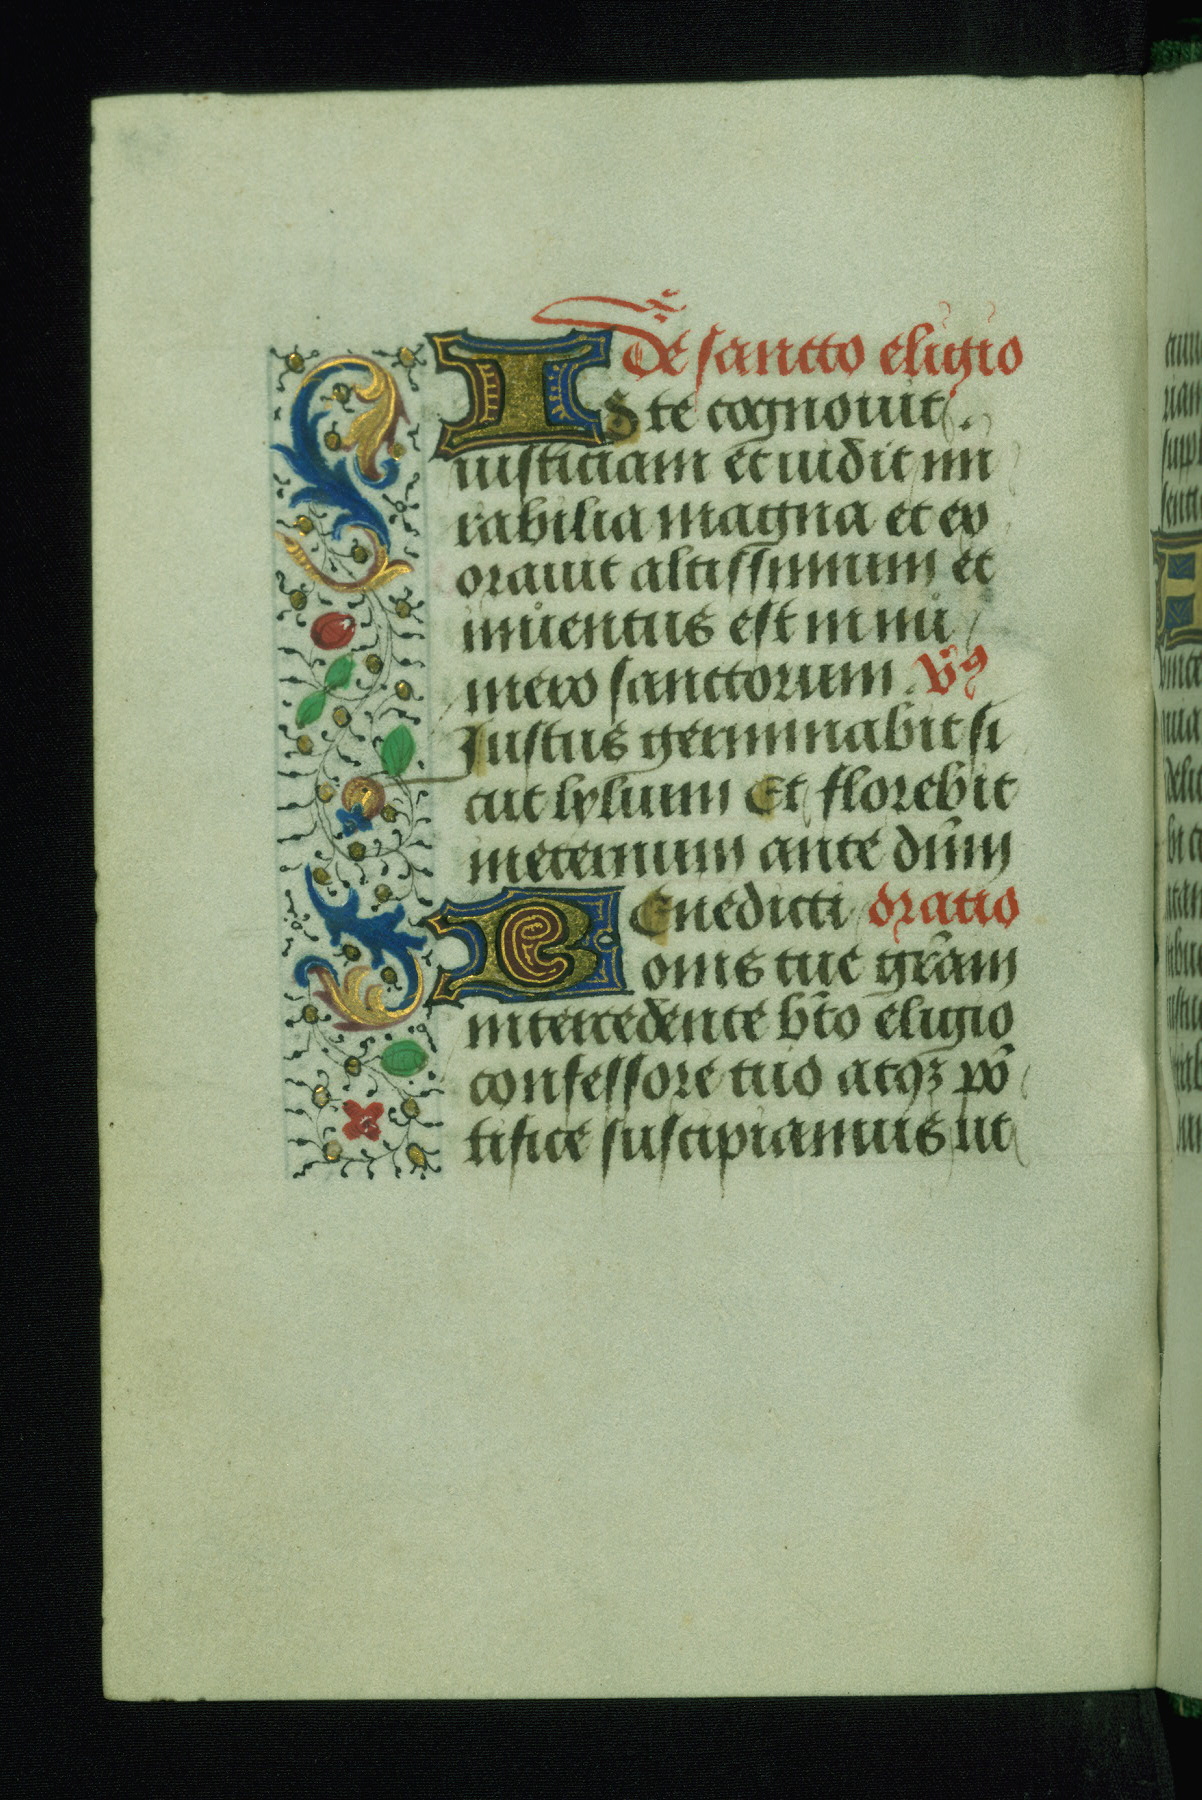 De sanctto eligio
Iste cognouit
iusticiam et uidit mi
rabilia magna et ex
orauit altissimum et
inuentus est in nu
mero sancttorum. v̄ꝰ
Iustus germinabit si
cut lylium Et florebit
in eternum ante dūm
Benedicti oratio
onis tue grām
intercedente bt̄o eligio
confessore tuo atqꝫ pō
tifice suscipiamus ut